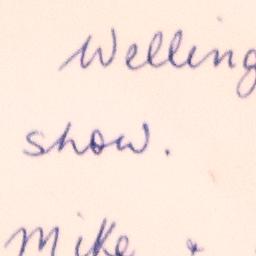 Welling
show.
Mike &